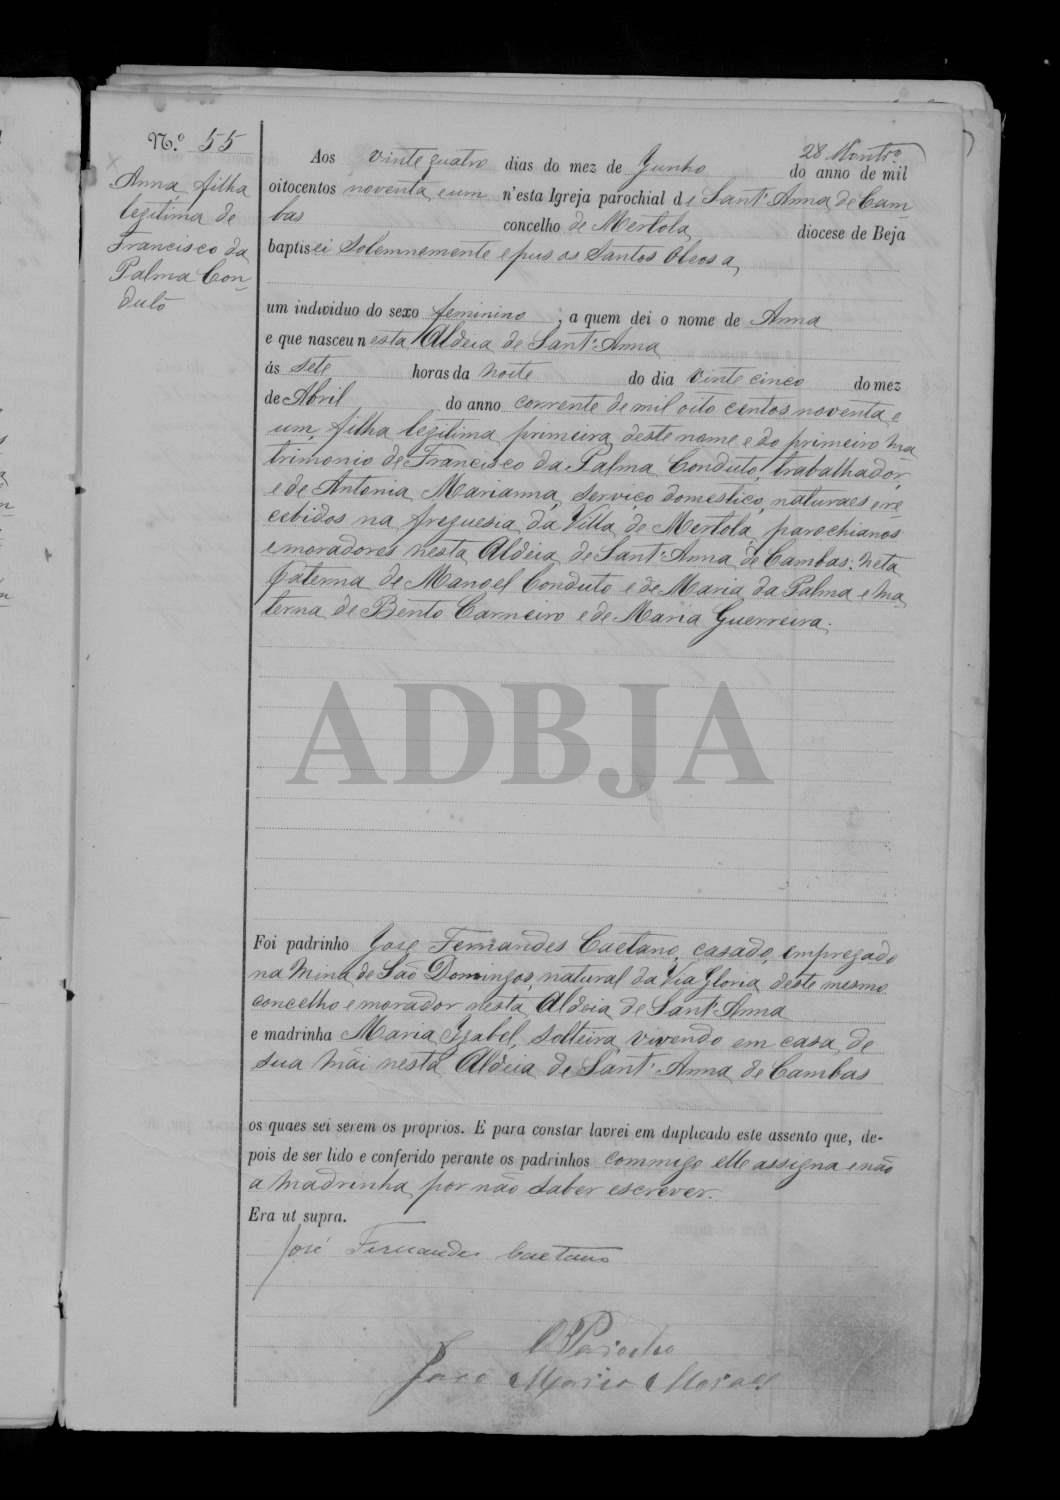 28 Montro
N.º 55
Anna, filha
legitima de
Francisco da
Palma Con-
duto
Aos vinte quatro dias do mez de Junho do anno de mil
oitocentos noventa e um n'esta Igreja parochial de Sant'Anna de Cam-
bas concelho de Mertola diocese de Beja
baptisei solemnemente e pus os Santos Oleos a
um individuo do sexo feminino, a quem dei o nome de Anna
e que nasceu nesta Aldeia de Sant'Anna
ás sete horas da noite do dia vinte cinco do mez
de Abril do anno corrente de mil oito centos noventa e
um, filha legitima primeira deste nome e do primeiro ma
trimonio de Francisco da Palma Conduto, trabalhador,
e de Antonia Marianna, serviço domestico, naturaes e re
cebidos na freguesia da Villa de Mertola, parochianos
e moradores nesta Aldeia de Sant'Anna de Cambas: neta
paterna de Manoel Conduto e de Maria da Palma e ma
terna de Bento Carneiro e de Maria Guerreira.
ADBJA
Foi padrinho José Fernandes Caetano, casado, empregado
na Mina de São Domingos, natural da Via Gloria deste mesmo
concelho e morador nesta Aldeia de Sant'Anna
e madrinha Maria Izabel, solteira, vivendo em casa de
sua mãi nesta Aldeia de Sant'Anna de Cambas
os quaes sei serem os proprios. E para constar lavrei em duplicado este assento que, de-
pois de ser lido e conferido perante os padrinhos commigo elle assigna e não
a madrinha por não saber escrever.
Era ut supra.
José Fernandes Caetano
O Parocho
José Maria Moraes